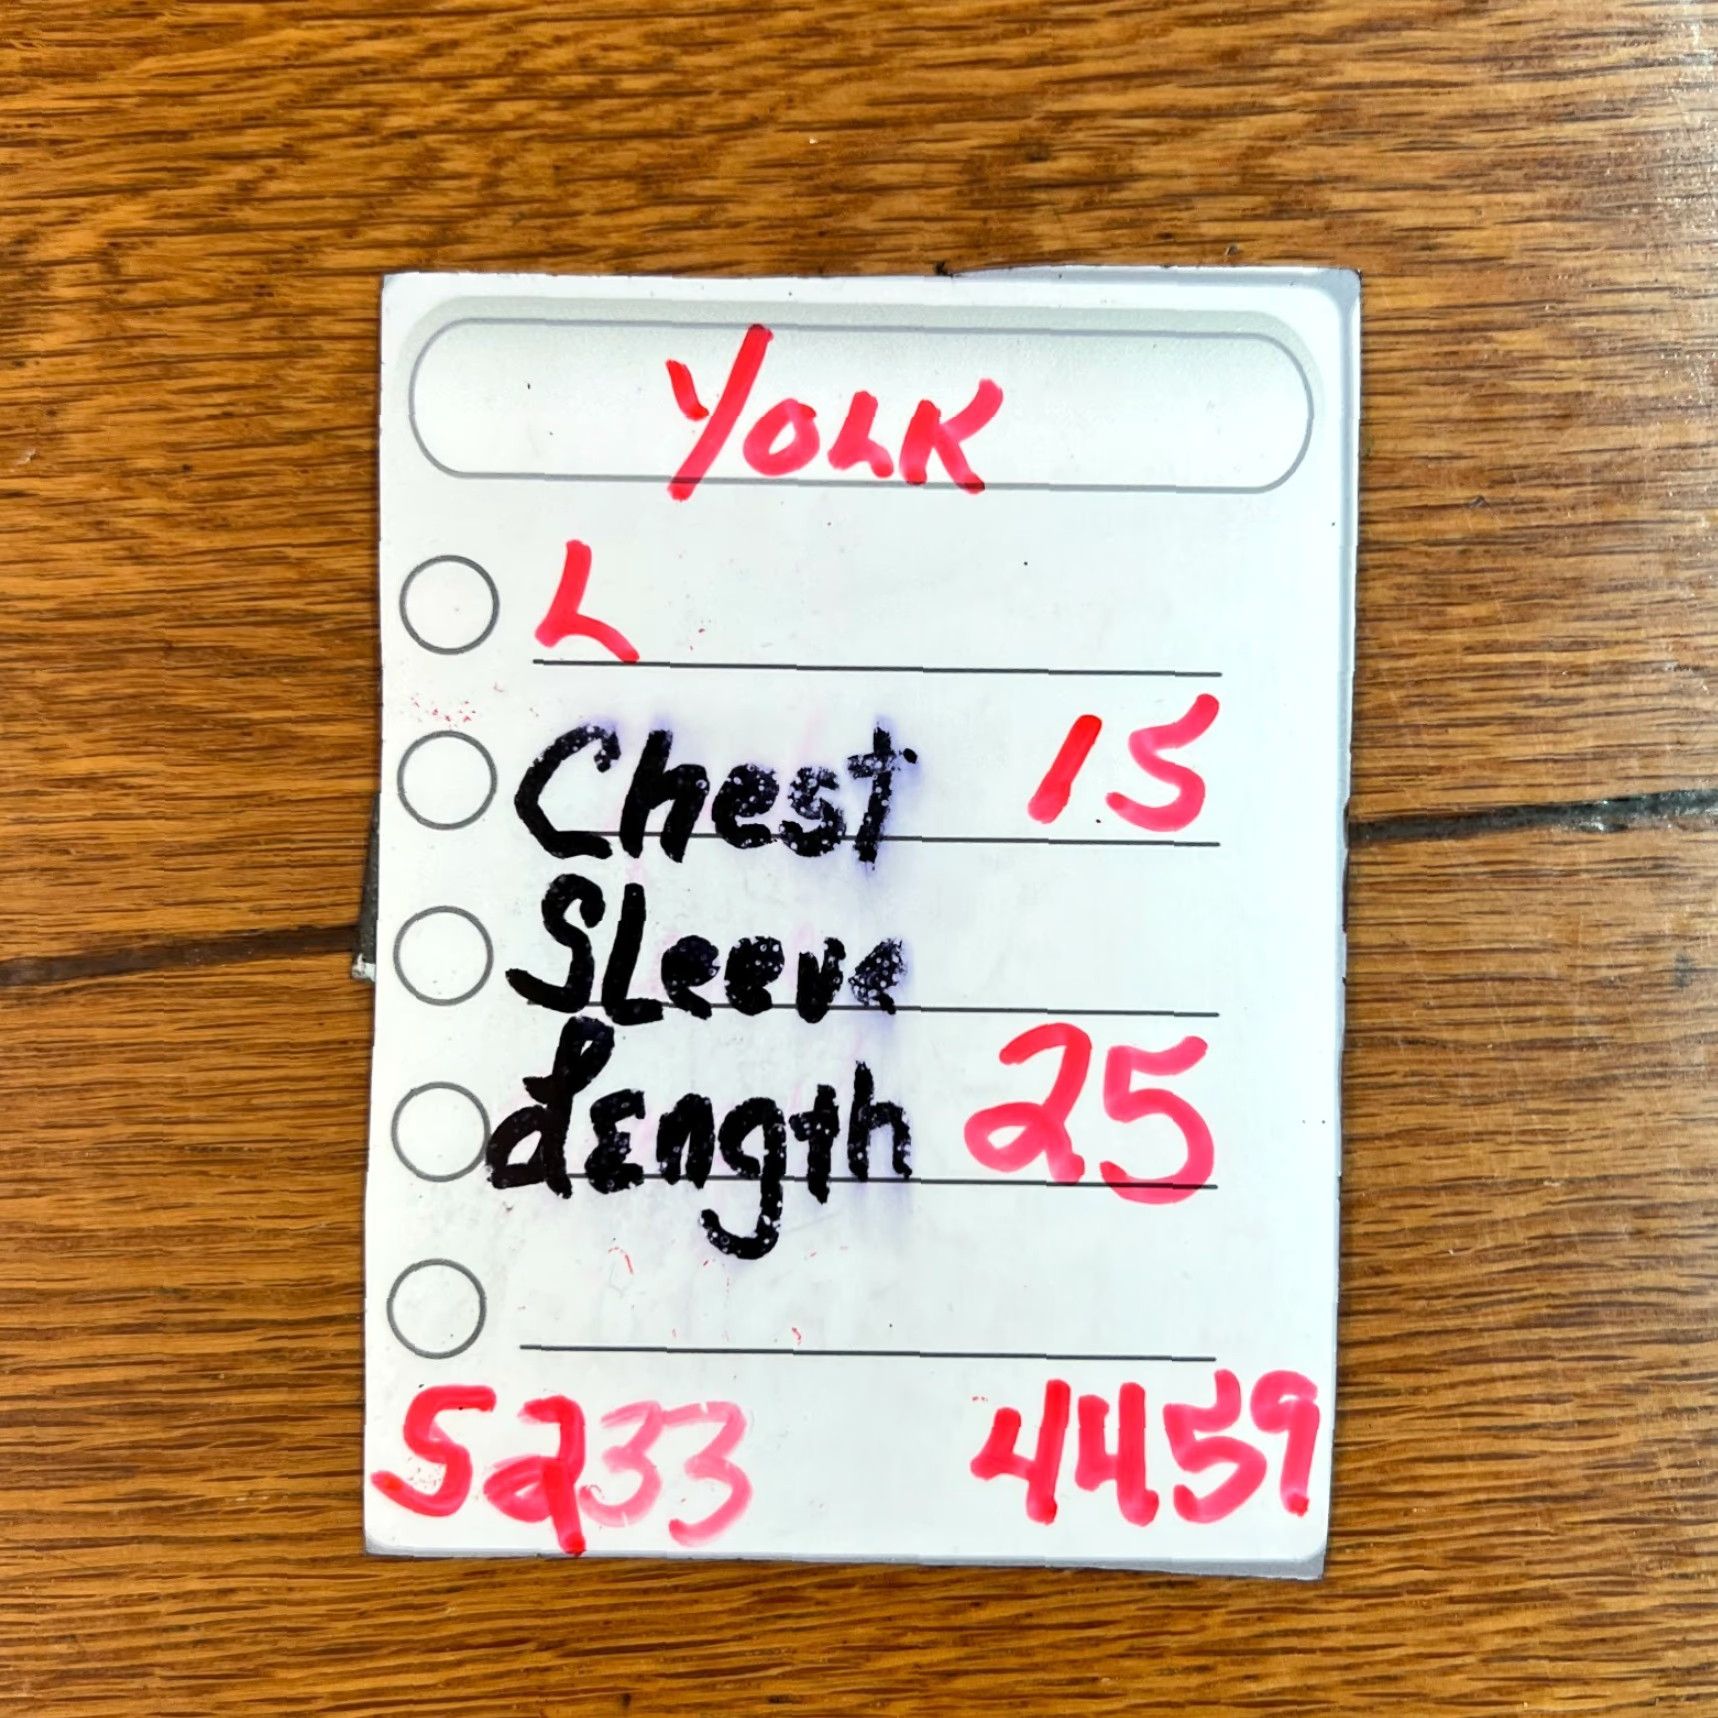 YOLK
L
Chest 15
SLeeve
Length 25
5233 4459